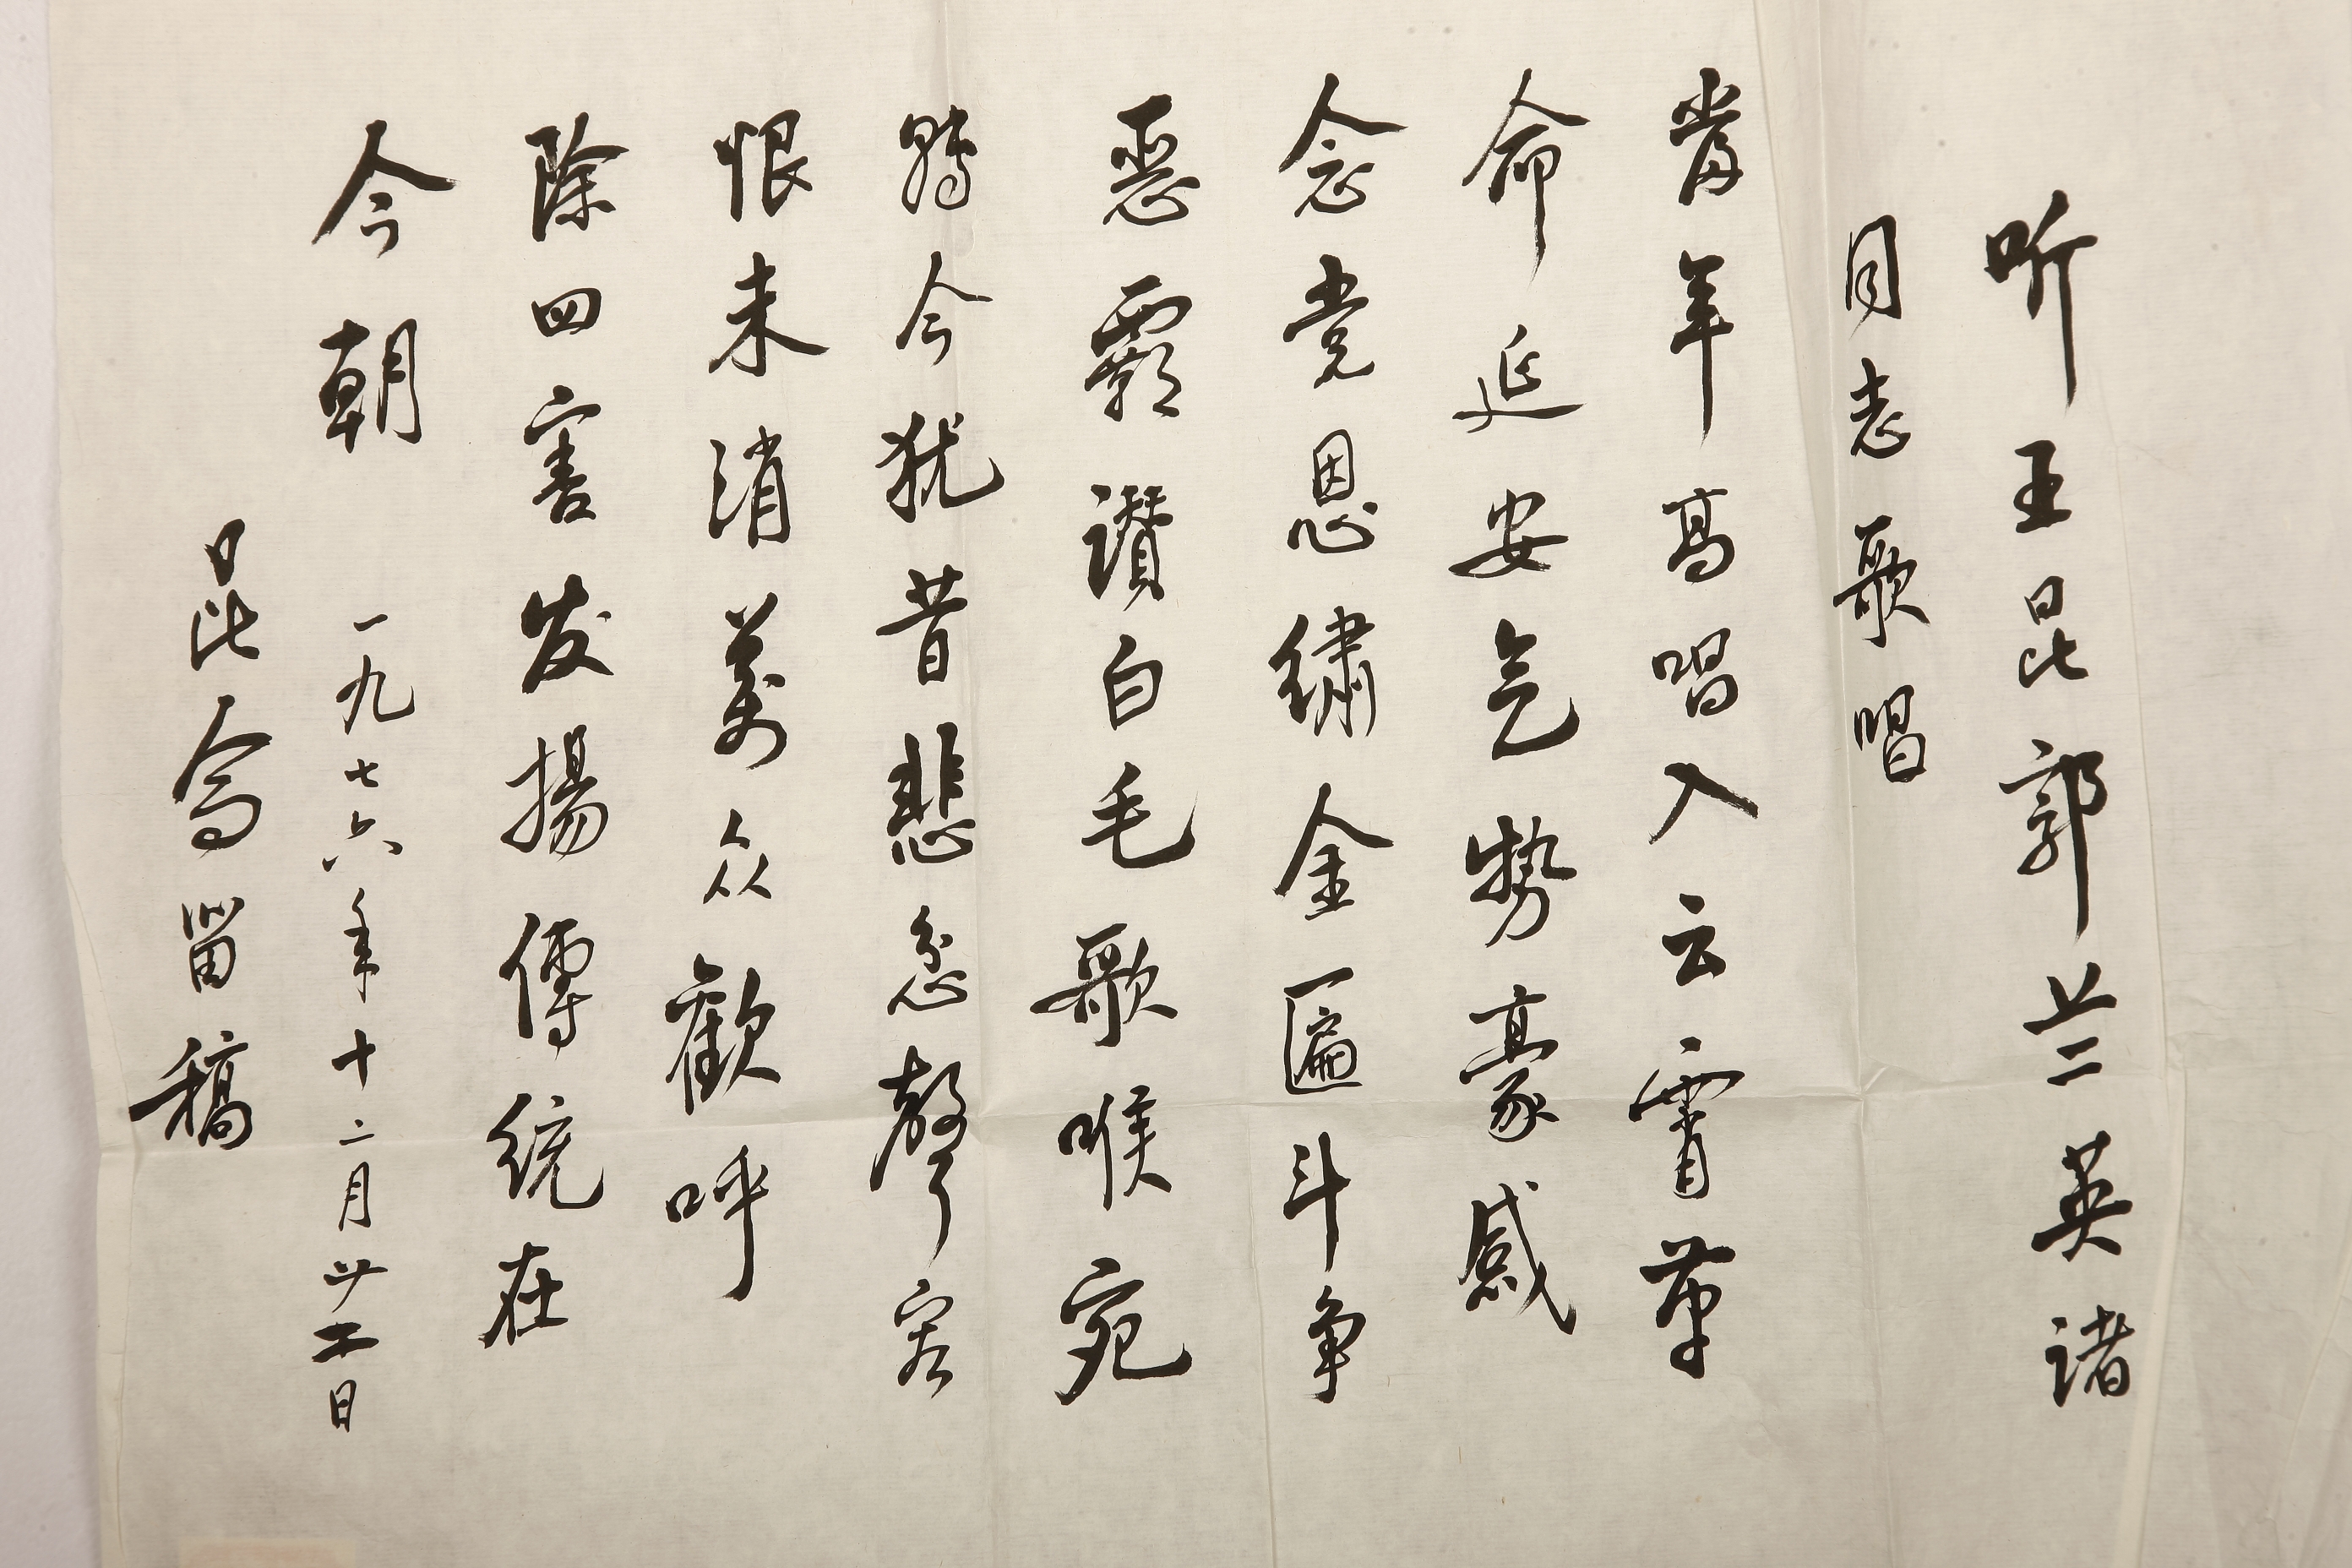 听王昆郭兰英诸
同志歌唱
當年高唱入云霄革
命延安气势豪感
念党恩繡金匾斗争
恶霸讚白毛歌喉宛
轉今犹昔悲忿聲容
恨未消萬众歡呼
除四害发揚傳统在
今朝
一九七六年十二月廿二日
昆侖留稿